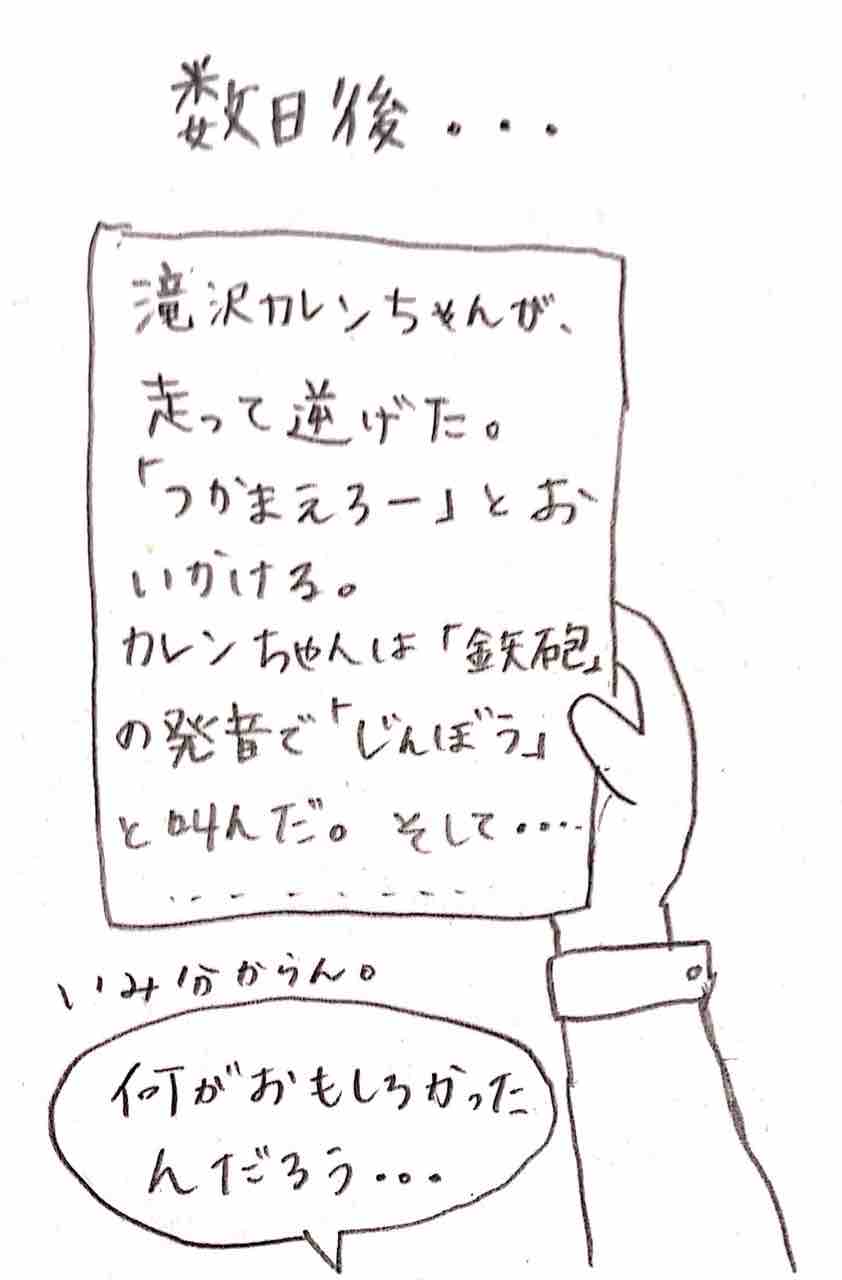 数日後・・・
滝沢カレンちゃんが、
走って逆げた。
「つかまえろー」とお
いかける。
カレンちゃんは「鉄砲」
の発音で「じんぼう」
と叫んだ。そして・・・・
・・・・・・・・
いみ分からん。
何がおもしろかった
んだろう・・・